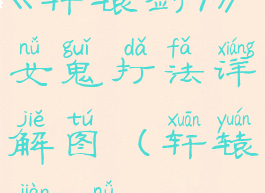 《轩辕剑》
nǚ guǐ dǎ fǎ xiáng
女鬼打法详
jiě tú xuān yuán
解图(轩辕
jiàn nǚ